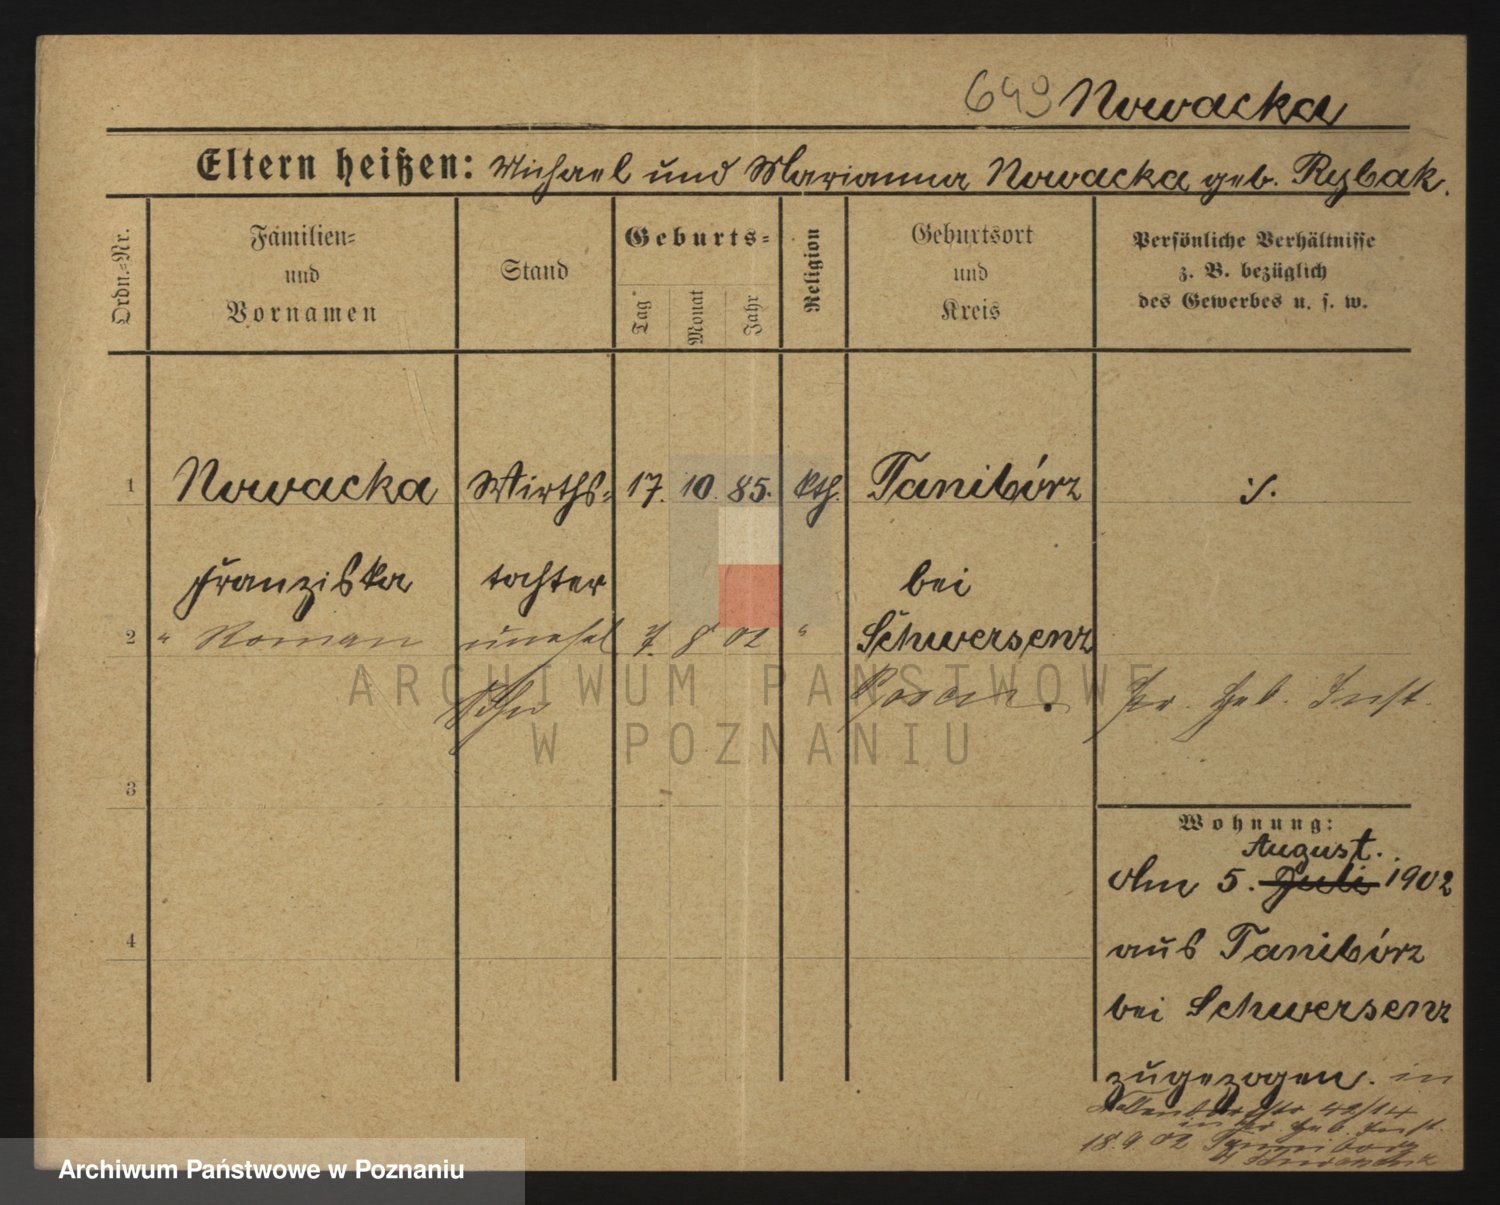 649 Nowacka
Eltern heißen: Michael und Marianna Nowacka geb. Rybak.
Ordn.-Nr.
Familien-
und
Vornamen
Stand
Geburts-
Tag
Monat
Jahr
Religion
Geburtsort
und
Kreis
Persönliche Verhältnisse
z. B. bezüglich
des Gewerbes u. s. w.
1 Nowacka Wirths- 17. 10. 85. kth. Tanibórz ./.
Franziska tochter bei
2 " Roman unehel 7. 8 02 " Schwersenz
Sohn Posen. Pr. Heb. Inst.
ARCHIWUM PAŃSTWOWE
W POZNANIU
3
Wohnung:
August.
Am 5. Juli 1902
4 aus Tanibórz
bei Schwersenz
zugezogen. in
42/14
in Pr. Heb. Inst.
18.9.02
Archiwum Państwowe w Poznaniu